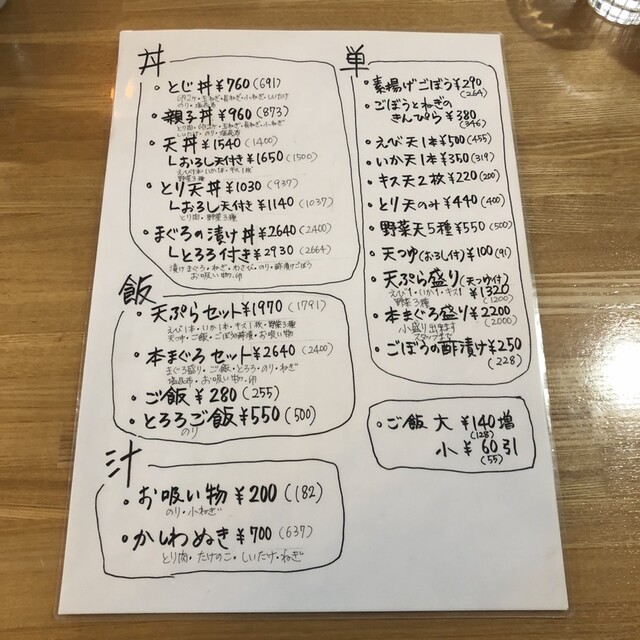 丼
・とじ丼 ¥760(691)
のり・塩昆布
・親子丼 ¥960(873)
しいたけ・のり・塩昆布
・天丼 ¥1540(1400)
┗おろし天付き ¥1650(1500)
えび1本・いか1本・キス1枚
野菜3種
・とり天丼 ¥1030(937)
┗おろし天付き ¥1140(1037)
とり肉・野菜3種
・まぐろの漬け丼 ¥2640(2400)
┗とろろ付き ¥2930(2664)
漬けまぐろ・ねぎ・わさび・のり・酢漬けごぼう
お吸い物・卵
飯
・天ぷらセット ¥1970(1791)
えび1本・いか1本・キス1枚・野菜3種
天つゆ・ご飯・ごぼう酢漬・お吸い物
・本まぐろセット ¥2640(2400)
まぐろ盛り・ご飯・とろろ・のり・ねぎ
塩昆布・お吸い物・卵
・ご飯 ¥280(255)
・とろろご飯 ¥550(500)
のり
汁
・お吸い物 ¥200(182)
のり・小ねぎ
・かしわぬき ¥700(637)
とり肉・たけのこ・しいたけ・ねぎ
単
・素揚げごぼう ¥290
(264)
・ごぼうとねぎの
きんぴら ¥380
(346)
・えび天1本 ¥500(455)
・いか天1本 ¥350(319)
・キス天2枚 ¥220(200)
・とり天のみ ¥440(400)
・野菜天5種 ¥550(500)
・天つゆ(おろし付) ¥100(91)
・天ぷら盛り(天つゆ付)
えび1・いか1・キス1 ¥1320
野菜3種 (1200)
・本まぐろ盛り ¥2200
小盛り出来ます (2000)
・ごぼうの酢漬け ¥250
(228)
・ご飯 大 ¥140増
(128)
小 ¥60引
(55)